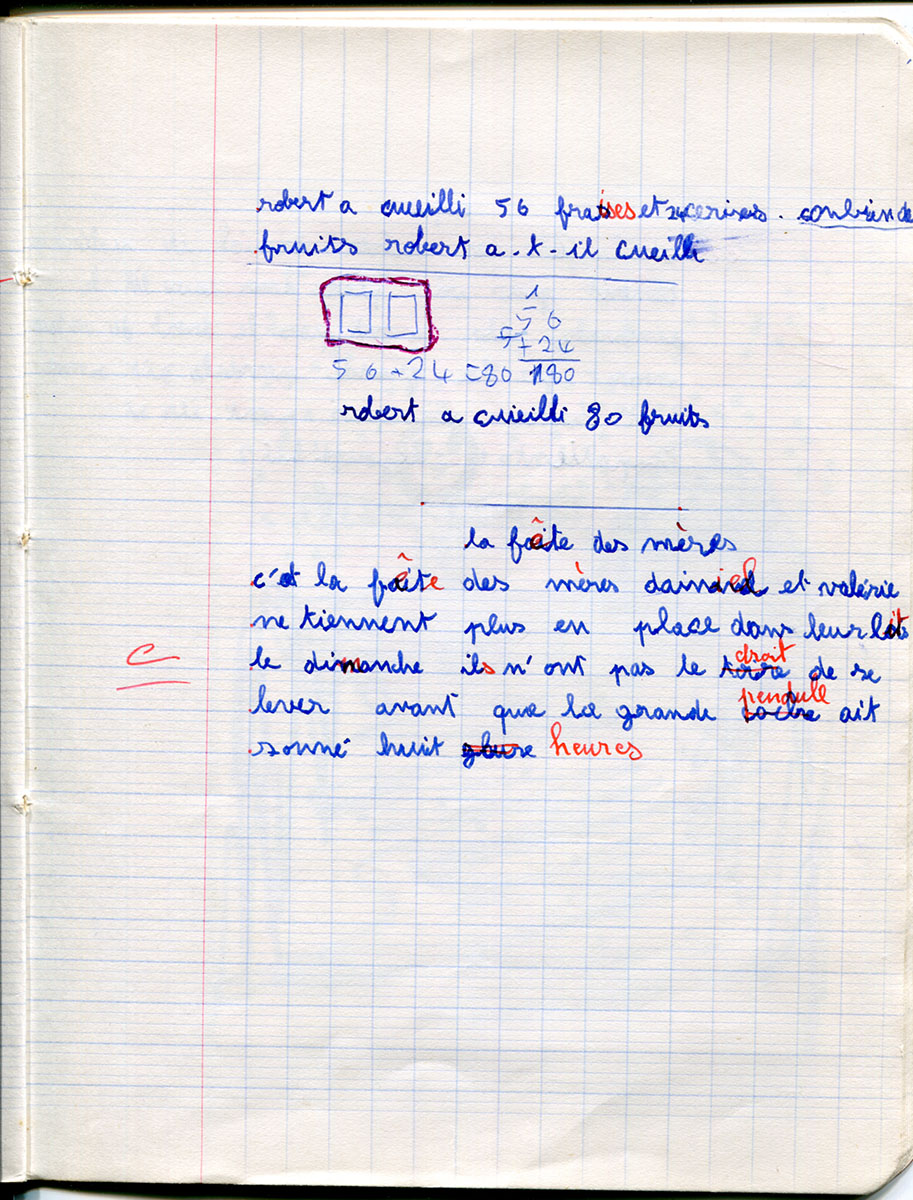 robert a cueilli 56 fraises et 24 cerises. combien de
fruits robert a-t-il cueilli
1
56
+24
56+24=80 180
robert a cuieilli 80 fruits
la fête des mères
c'est la fête des mères daniel et valérie
ne tiennent plus en place dans leur lit
le dimanche ils n'ont pas le droit de se
lever avant que la grande pendule ait
sonné huit heures
C